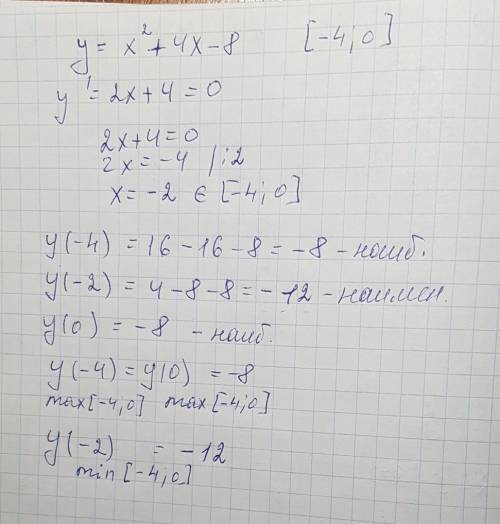 y = x² + 4x - 8 [-4; 0]
y' = 2x + 4 = 0
2x + 4 = 0
2x = -4 |:2
x = -2 ∈ [-4; 0]
y(-4) = 16 - 16 - 8 = -8 - наиб.
y(-2) = 4 - 8 - 8 = -12 - наимен.
y(0) = -8 - наиб.
y(-4) = y(0) = -8
max[-4;0] max[-4;0]
y(-2) = -12
min [-4;0]